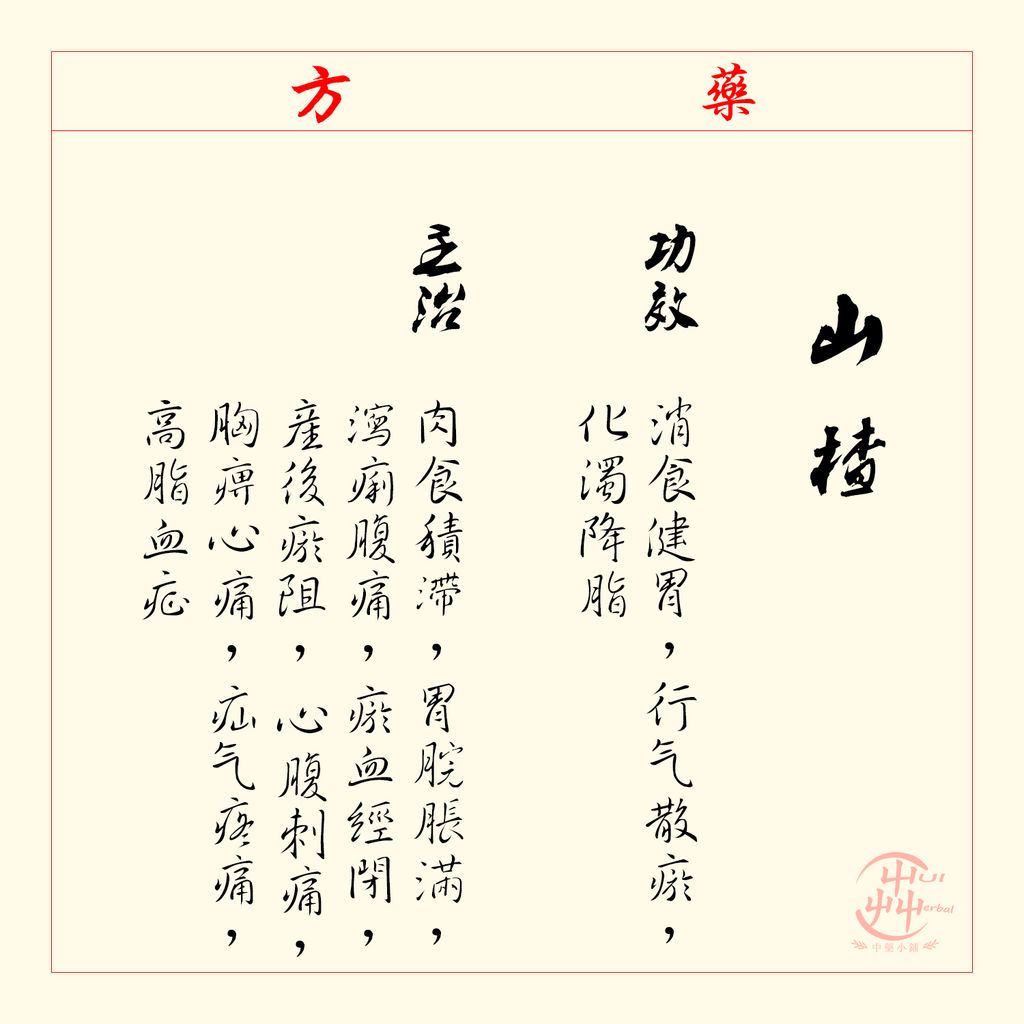 藥方
山楂
功效
消食健胃,行气散瘀,
化濁降脂
主治
肉食積滯,胃脘脹滿,
瀉痢腹痛,瘀血經閉,
産後瘀阻,心腹刺痛,
胸痹心痛,疝气疼痛,
高脂血症
卉UI
Herbal
中藥小鋪